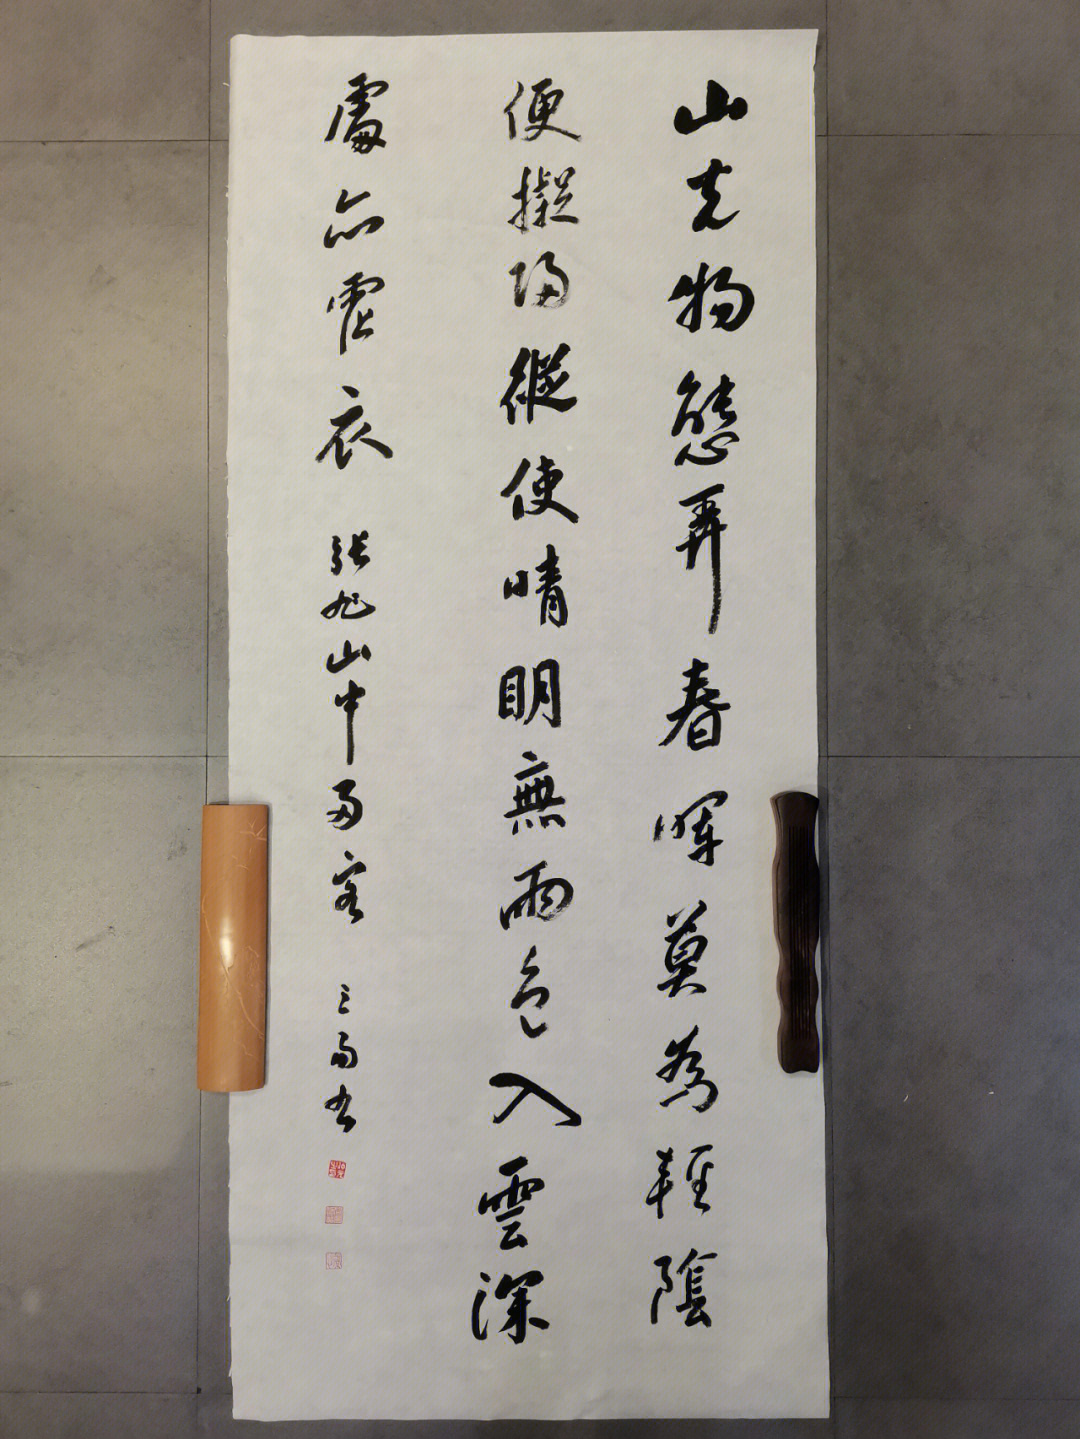 山光物態弄春暉莫為輕陰
便擬歸縱使晴明無雨色入雲深
處亦霑衣 張旭山中留客 書